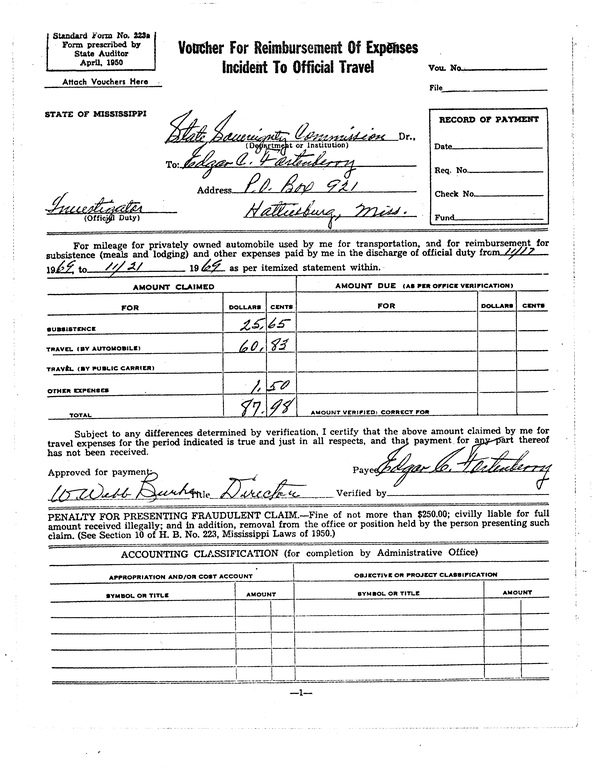 Standard Form No. 223a
Form prescribed by
State Auditor
April, 1950
Attach Vouchers Here
Voucher For Reimbursement Of Expenses
Incident To Official Travel
Vou. No.
File
STATE OF MISSISSIPPI
State Sovereignty Commission Dr.,
(Department or Institution)
To: Edgar C. Fortenberry
Address P.O. Box 921
Hattiesburg, Miss.
Investigator
(Official Duty)
RECORD OF PAYMENT
Date
Req. No.
Check No.
Fund
For mileage for privately owned automobile used by me for transportation, and for reimbursement for
subsistence (meals and lodging) and other expenses paid by me in the discharge of official duty from 11/17
1969, to 11/21 1969 as per itemized statement within.
AMOUNT CLAIMED AMOUNT DUE (AS PER OFFICE VERIFICATION)
FOR DOLLARS CENTS FOR DOLLARS CENTS
SUBSISTENCE 25.65
TRAVEL (BY AUTOMOBILE) 60.83
TRAVEL (BY PUBLIC CARRIER)
OTHER EXPENSES 1.50
TOTAL 87.98 AMOUNT VERIFIED: CORRECT FOR
Subject to any differences determined by verification, I certify that the above amount claimed by me for
travel expenses for the period indicated is true and just in all respects, and that payment for any part thereof
has not been received.
Approved for payment: Payee Edgar C. Fortenberry
W. Webb Burke Title Director Verified by
PENALTY FOR PRESENTING FRAUDULENT CLAIM.—Fine of not more than $250.00; civilly liable for full
amount received illegally; and in addition, removal from the office or position held by the person presenting such
claim. (See Section 10 of H. B. No. 223, Mississippi Laws of 1950.)
ACCOUNTING CLASSIFICATION (for completion by Administrative Office)
APPROPRIATION AND/OR COST ACCOUNT OBJECTIVE OR PROJECT CLASSIFICATION
SYMBOL OR TITLE AMOUNT SYMBOL OR TITLE AMOUNT
—1—